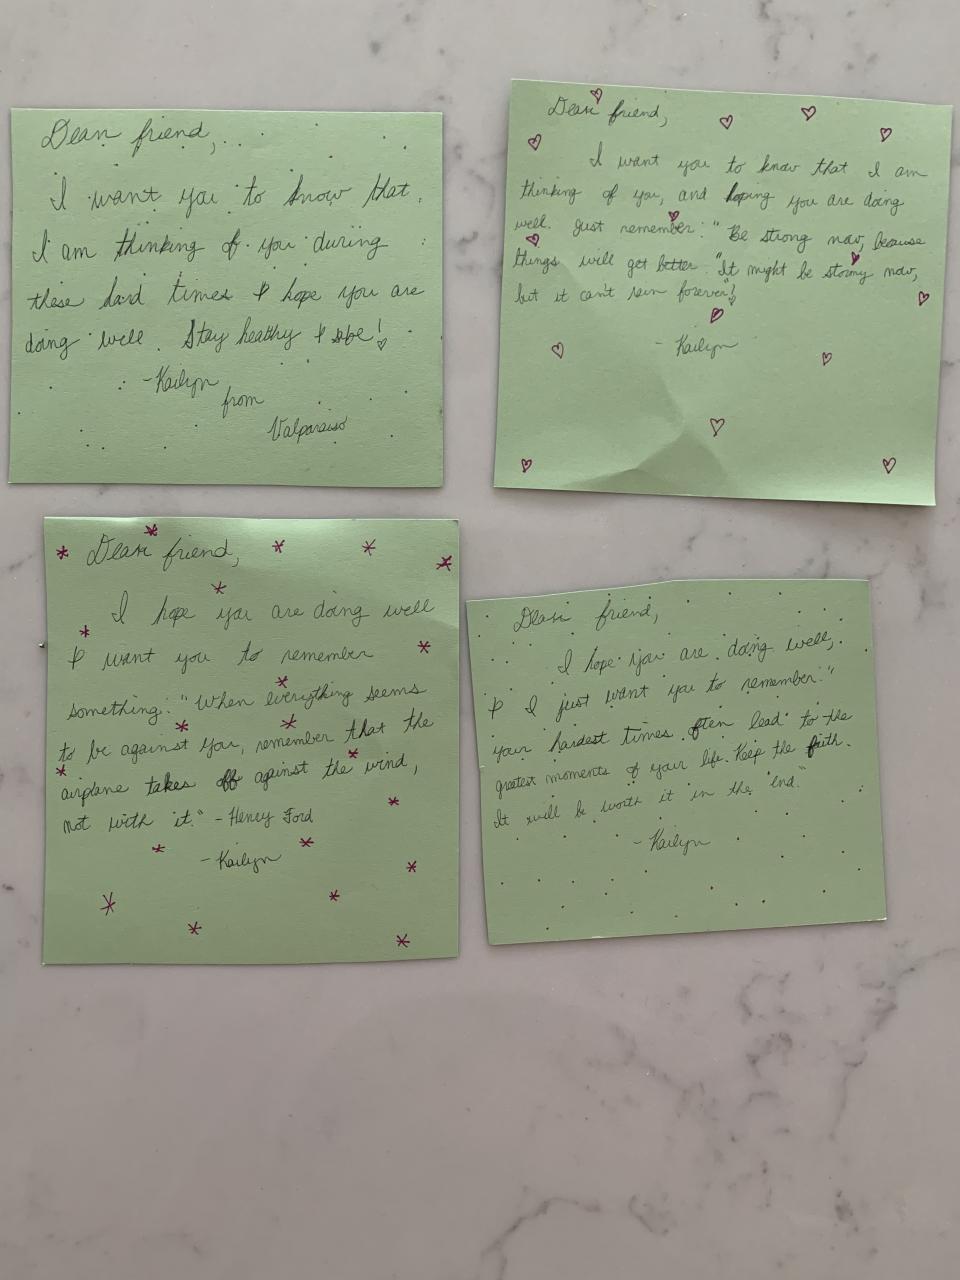 Dear friend,
I want you to know that
I am thinking of you during
these hard times & hope you are
doing well. Stay healthy & safe!
-Kailyn
from
Valparaiso
Dear friend,
I want you to know that I am
thinking of you, and hoping you are doing
well. Just remember: "Be strong now, because
things will get better. "It might be stormy now,
but it can't rain forever"!
- Kailyn
Dear friend,
I hope you are doing well
& want you to remember
something: "When everything seems
to be against you, remember that the
airplane takes off against the wind,
not with it." - Henry Ford
- Kailyn
Dear friend,
I hope you are doing well,
& I just want you to remember: "
your hardest times often lead to the
greatest moments of your life. Keep the faith.
It will be worth it in the end."
- Kailyn